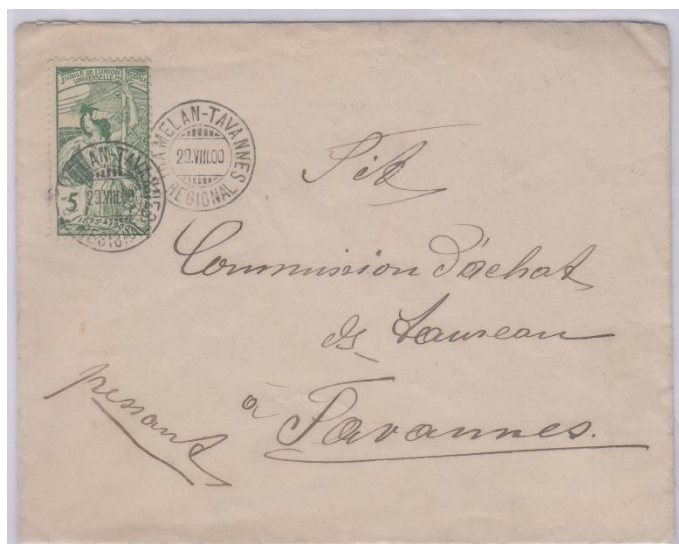 JUBILÉ DE L'UNION POSTALE
UNIVERSELLE
5
1875-1900
TRAMELAN-TAVANNES
29.VIII.00
REGIONAL
TRAMELAN-TAVANNES
29.VIII.00
REGIONAL
Tit
Commission d'achat
ds taureau
à Tavannes.
pressant